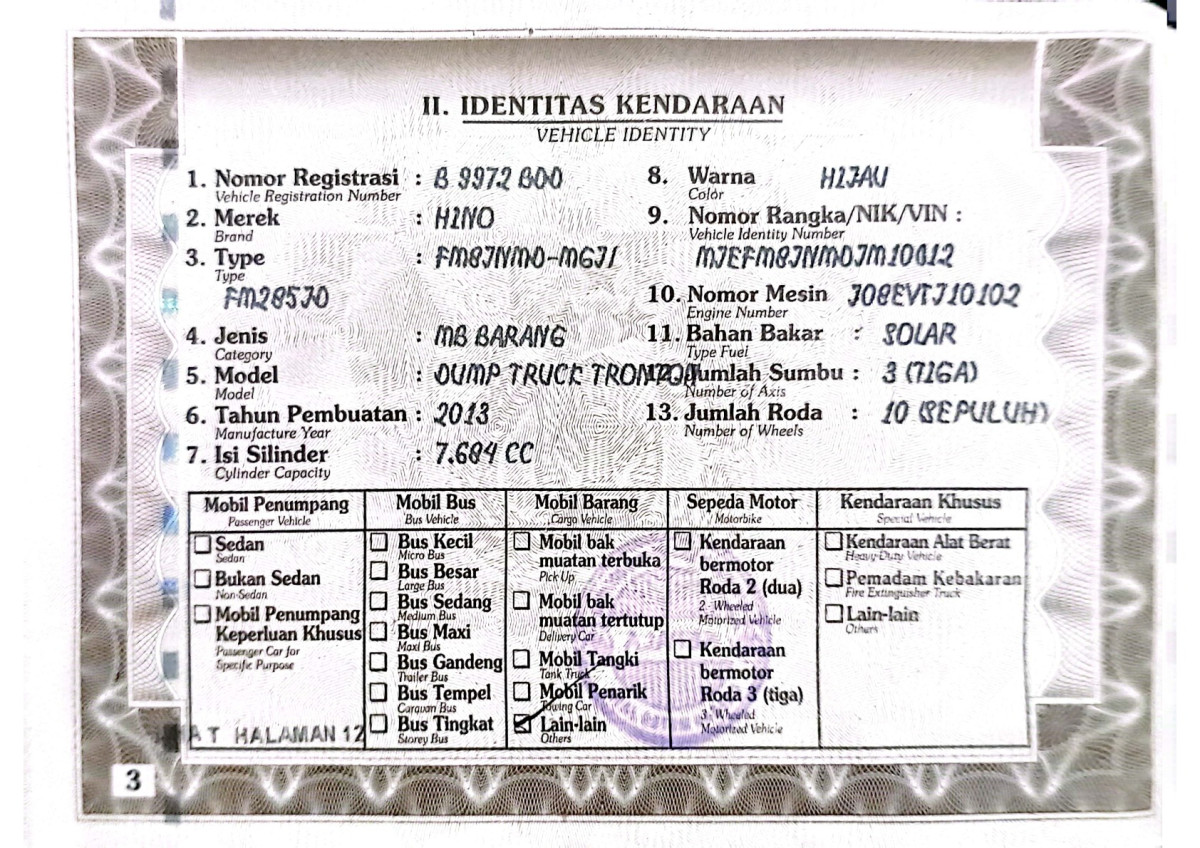 II. IDENTITAS KENDARAAN
VEHICLE IDENTITY
1. Nomor Registrasi : B 9972 BDD
Vehicle Registration Number
2. Merek : HINO
Brand
3. Type : FM8JNMD-MGJ1
Type
FM285JD
4. Jenis : MB BARANG
Category
5. Model : DUMP TRUCK
Model
6. Tahun Pembuatan : 2013
Manufacture Year
7. Isi Silinder : 7.684 CC
Cylinder Capacity
8. Warna HIJAU
Color
9. Nomor Rangka/NIK/VIN :
Vehicle Identity Number
MJEFM8JNMDJM10612
10. Nomor Mesin J08EVTJ10102
Engine Number
11. Bahan Bakar : SOLAR
Type Fuel
Jumlah Sumbu : 3 (TIGA)
Number of Axis
13. Jumlah Roda : 10 (SEPULUH)
Number of Wheels
Mobil Penumpang
Passenger Vehicle
Sedan
Sedan
Bukan Sedan
Non-Sedan
Mobil Penumpang
Keperluan Khusus
Passenger Car for
Specific Purpose
AT HALAMAN 12
Mobil Bus
Bus Vehicle
Bus Kecil
Micro Bus
Bus Besar
Large Bus
Bus Sedang
Medium Bus
Bus Maxi
Maxi Bus
Bus Gandeng
Trailer Bus
Bus Tempel
Caravan Bus
Bus Tingkat
Storey Bus
Mobil Barang
Cargo Vehicle
Mobil bak
muatan terbuka
Pick Up
Mobil bak
muatan tertutup
Delivery Car
Mobil Tangki
Tank Truck
Mobil Penarik
Towing Car
Lain-lain
Others
Sepeda Motor
Motorbike
Kendaraan
bermotor
Roda 2 (dua)
2 Wheeled
Motorized Vehicle
Kendaraan
bermotor
Roda 3 (tiga)
3 Wheeled
Motorized Vehicle
Kendaraan Khusus
Special Vehicle
Kendaraan Alat Berat
Heavy-Duty Vehicle
Pemadam Kebakaran
Fire Extinguisher Truck
Lain-lain
Others
3